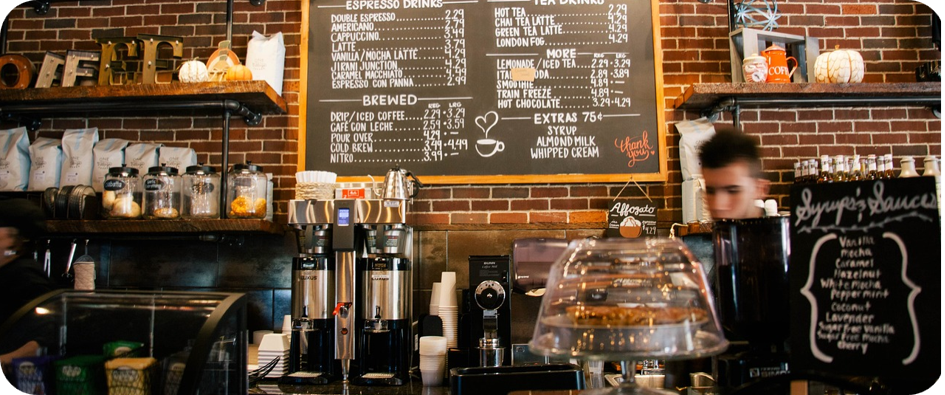 COFFEE
ESPRESSO DRINKS
DOUBLE ESPRESSO 2.29
AMERICANO
CAPPUCCINO 3.49
LATTE 3.79
VANILLA/MOCHA LATTE 4.29
JUNCTION 4.29
CARAMEL MACCHIATO
ESPRESSO CON PANNA 2.99
BREWED
REG. LRG.
DRIP/ICED COFFEE 2.29
CAFÉ CON LECHE 2.59
POUR OVER
COLD BREW 4.49
NITRO 3.99
TEA DRINKS
HOT TEA 2.29
CHAI TEA LATTE 4.29
GREEN TEA LATTE 4.29
LONDON FOG 4.29
MORE
REG. LRG.
LEMONADE/ICED TEA 2.29 3.29
SODA 2.89 3.89
SMOOTHIE 4.89
TRAIN FREEZE 4.89
HOT CHOCOLATE 3.29 4.29
EXTRAS 75¢
SYRUP
ALMOND MILK
WHIPPED CREAM
thank you
Affogato
$4.29
Syrups & Sauces
Vanilla
Mocha
Caramel
Hazelnut
White Mocha
Peppermint
Coconut
Lavender
Sugar Free Vanilla
Sugar Free Mocha
Cherry